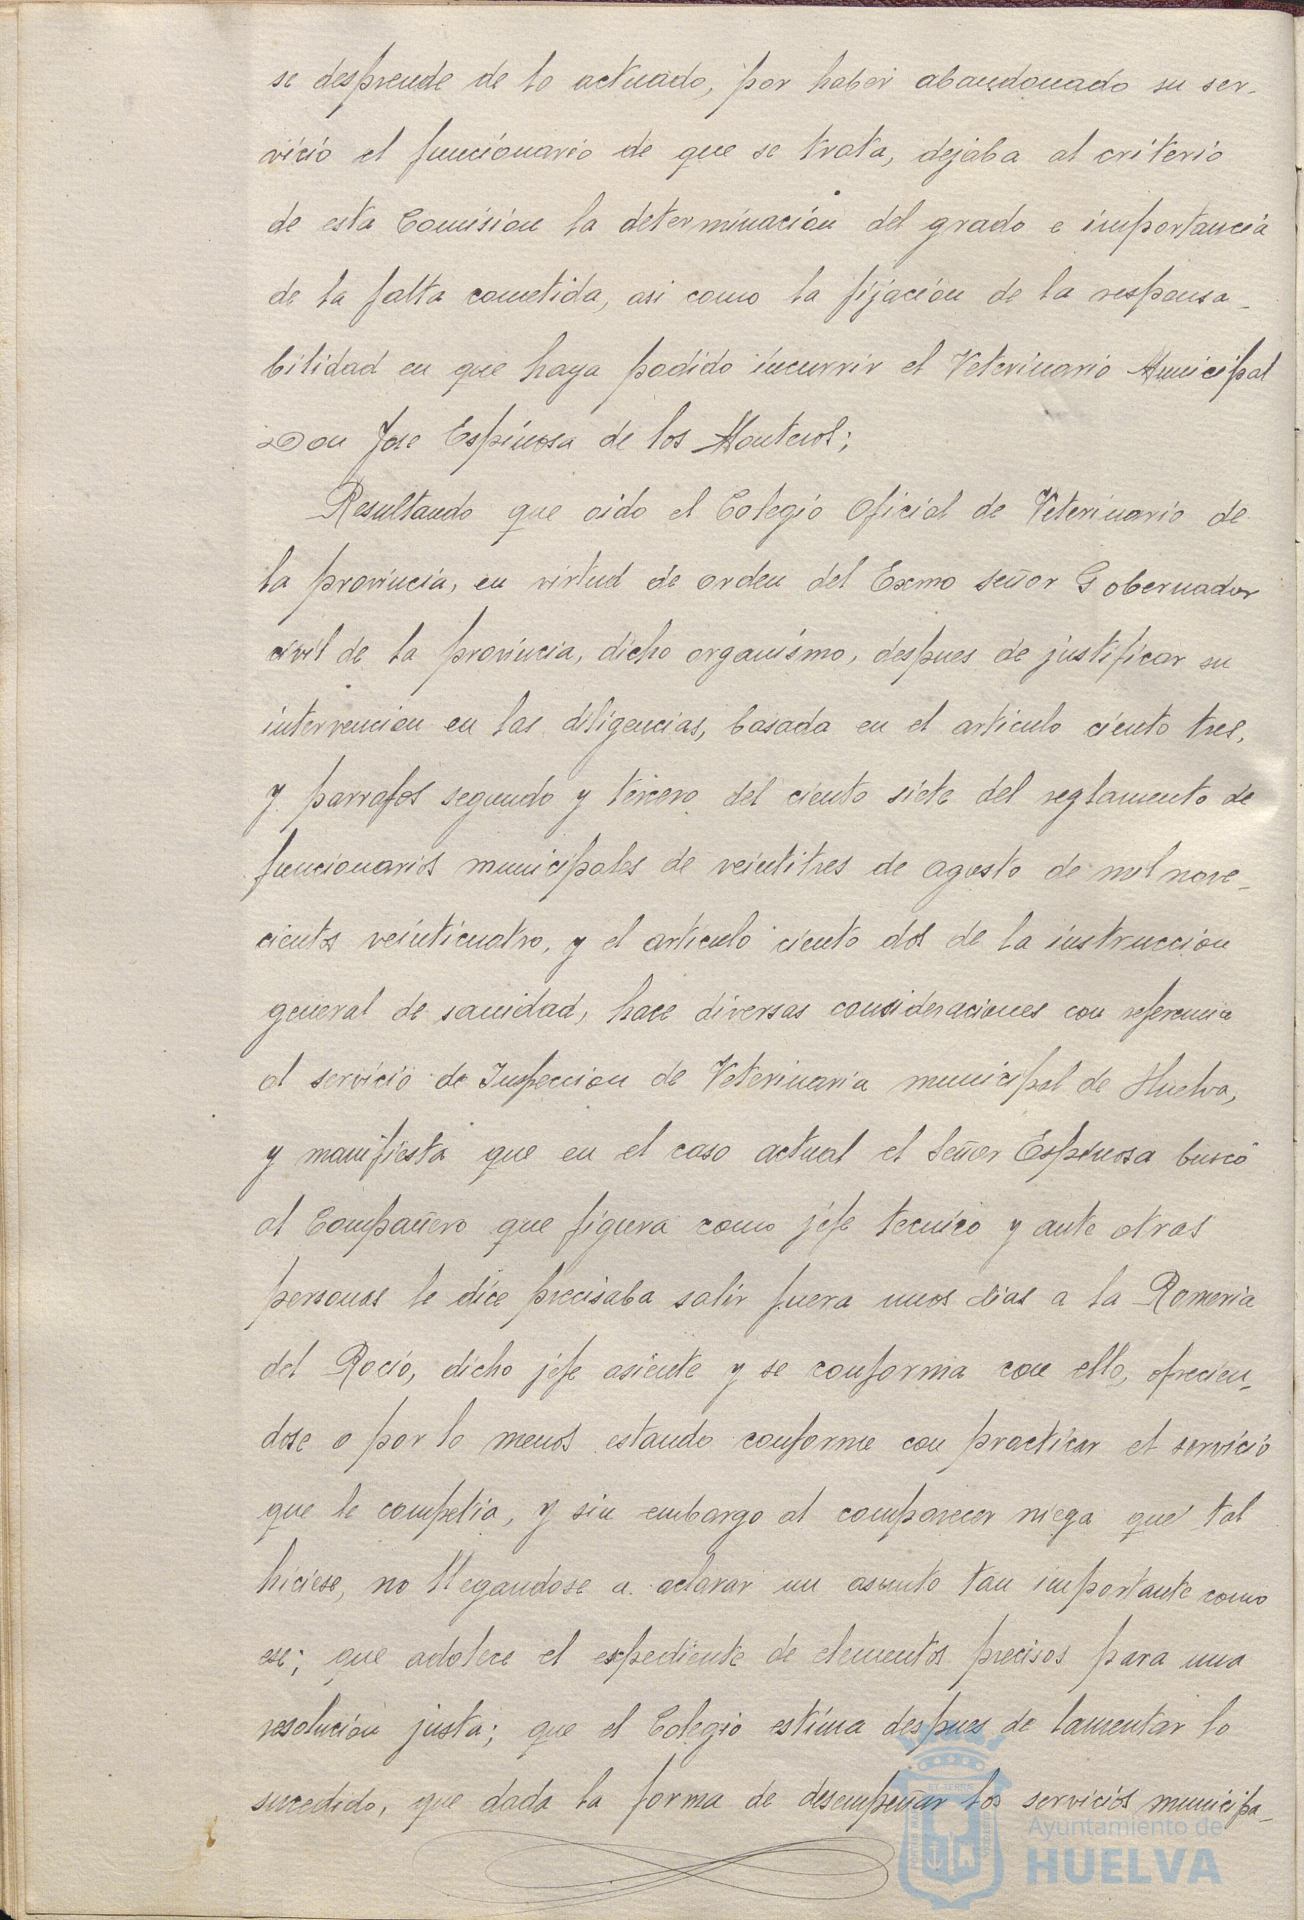 se desprende de lo actuado, por haber abandonado su ser-
vicio el funcionario de que se trata, dejaba al criterio
de esta Comisión la determinación del grado e importancia
de la falta cometida, asi como la fijación de la responsa-
bilidad en que haya podido incurrir el Veterinario Municipal
Don Jose Espinosa de los Monteros;
Resultando que oido el Colegio Oficial de Veterinario de
la provincia, en virtud de orden del Exmo señor Gobernador
civil de la provincia, dicho organismo, despues de justificar su
intervencion en las diligencias, basada en el articulo ciento tres,
y parrafos segundo y tercero del ciento siete del reglamento de
funcionarios municipales de veintitres de agosto de mil nove-
cientos veinticuatro, y el articulo ciento dos de la instruccion
general de sanidad, hace diversas consideraciones con referencia
al servicio de Inspeccion de Veterinaria municipal de Huelva,
y manifiesta que en el caso actual el señor Espinosa buscó
al Compañero que figura como jefe tecnico y ante otras
personas le dice precisaba salir fuera unos dias a la Romeria
del Rocio, dicho jefe asiente y se conforma con ello, ofrecien-
dose o por lo menos estando conforme con practicar el servicio
que le competia, y sin embargo al comparecer niega que tal
hiciese, no llegandose a aclarar un asunto tan importante como
ese; que adolece el expediente de elementos precisos para una
resolución justa; que el Colegio estima despues de lamentar lo
sucedido, que dada la forma de desempeñar los servicios municipa-
Ayuntamiento de
HUELVA